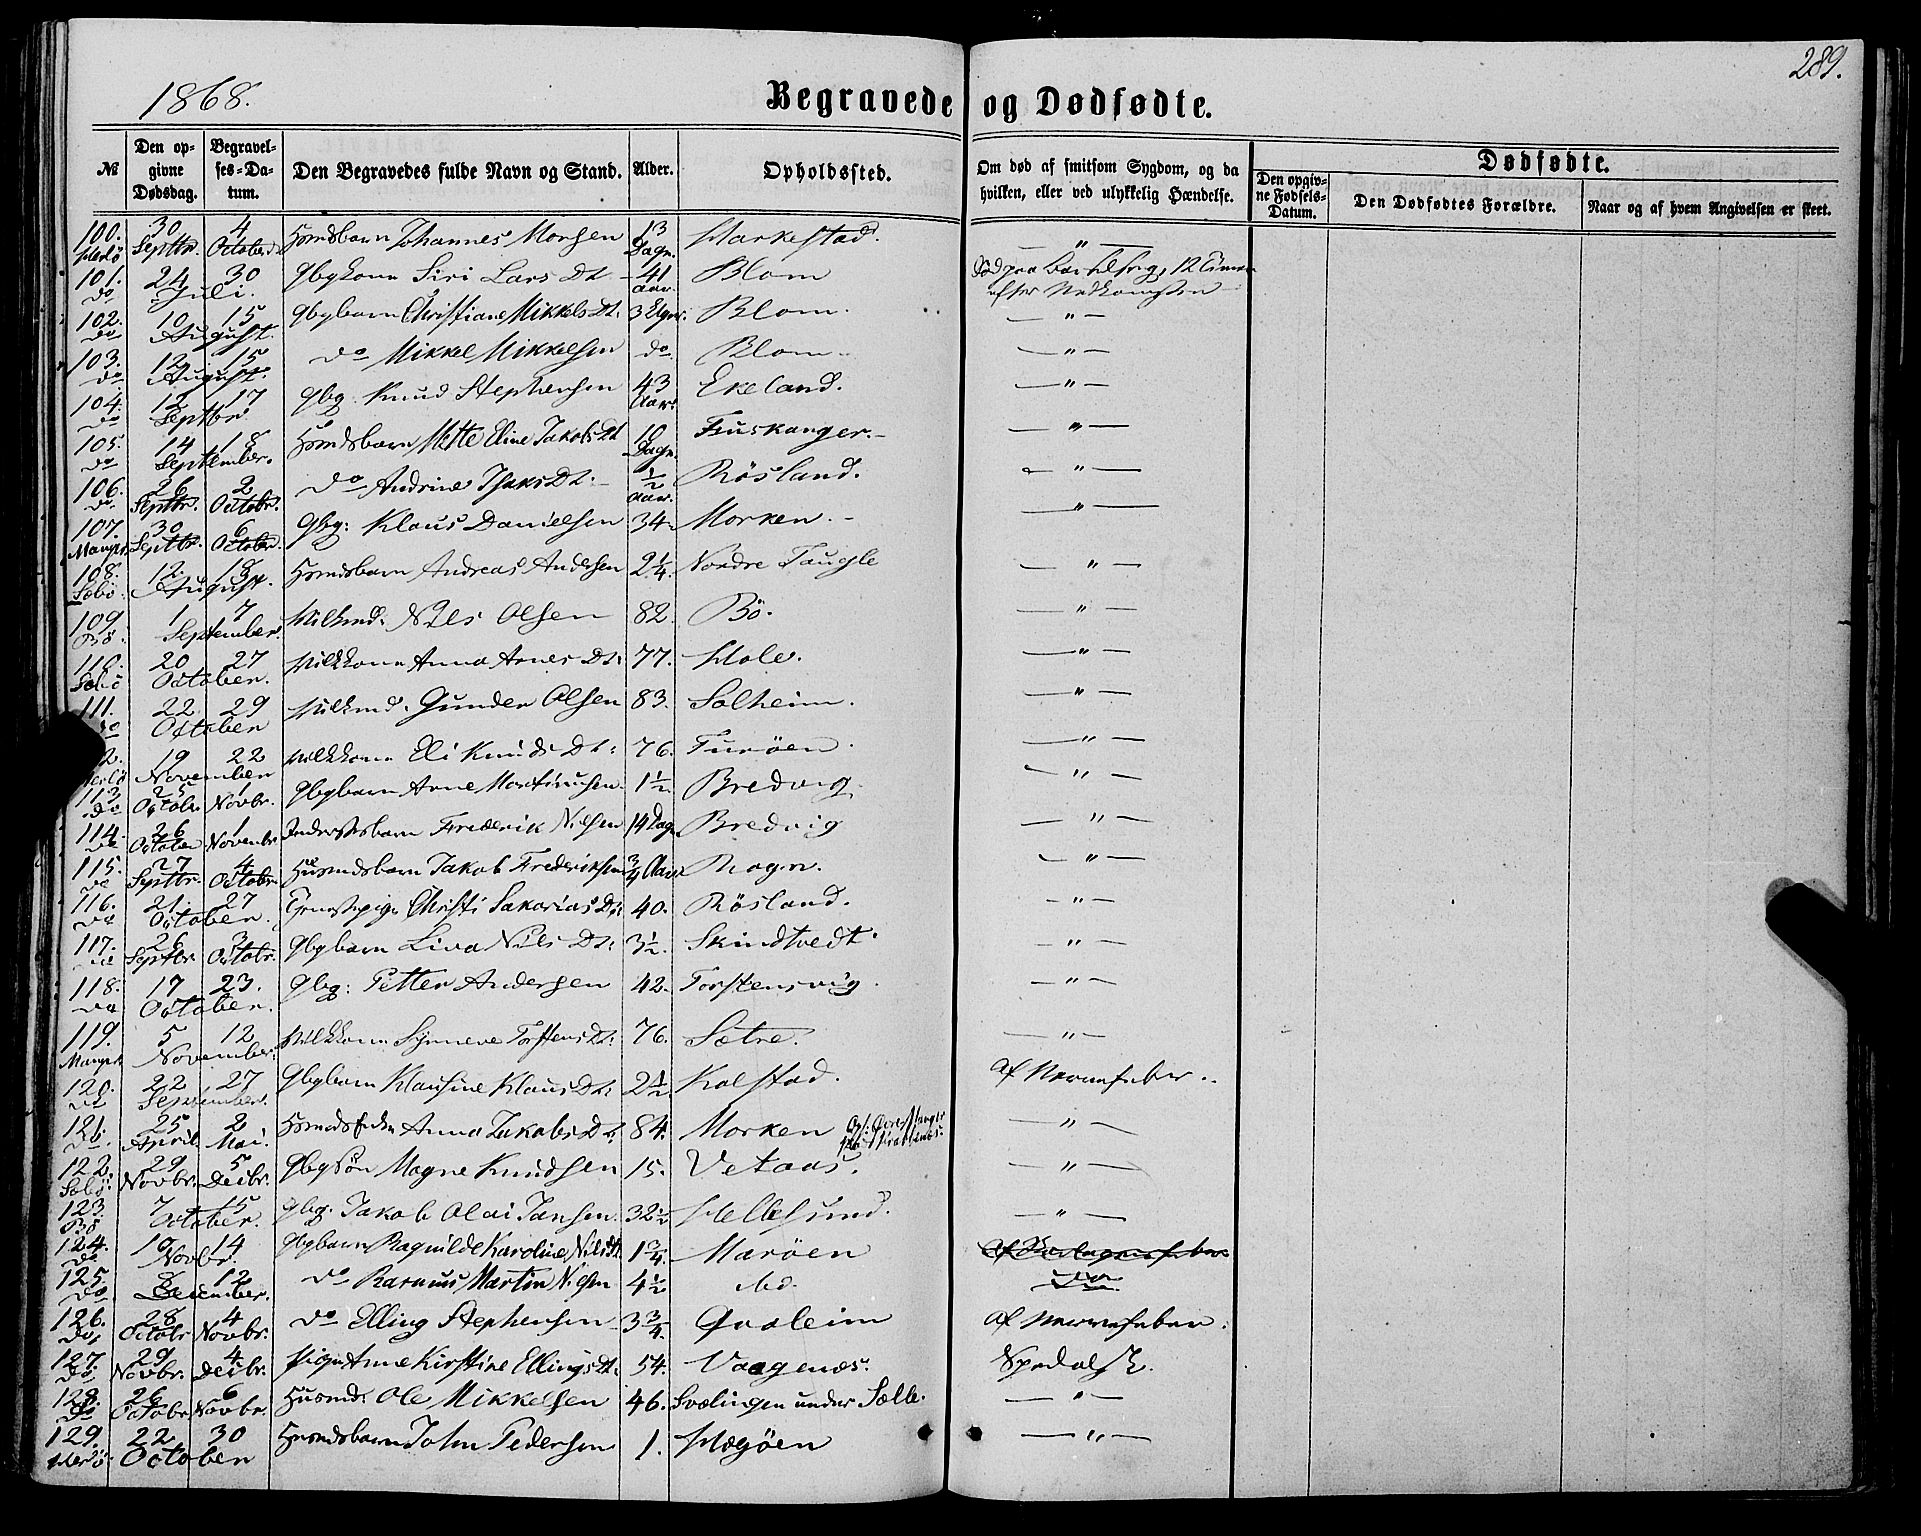 289.
1868.
Begravede og Dødfødte.
№
Den opgivne Dødsdag.
Begravelses-Datum.
Den Begravedes fulde Navn og Stand.
Alder.
Opholdssted.
Om død af smitsom Sygdom, og da hvilken, eller ved ulykkelig Hændelse.
Dødfødte.
Den opgivne Fødsels-Datum.
Den Dødfødtes Forældre.
Naar og af hvem Angivelsen er skeet.
100. Herlö 30 Septbr. 4 October Hsmdsbarn Johannes Monsen 13 Dage. Harkestad. — " —
101. do 24 30 Juli. Gbgkone Siri Lars Dt 41 Aar. Blom Död paa Barselseng, 12 Timer
efter Nedkomsten
102. do 10 15 August. Gbgbarn Christiane Mikkels Dt: 3 Blom. — " —
103. do 12 15 August. do Mikkel Mikkelsen do. Blom. — " —
104. do 12 17 Septbr Gbg. Knud Stephensen 43 Aar. Ekeland. — " —
105. do 14 18 September. Hsmdsbarn Mette Eline Jakobs Dt 10 Dage. Fuskanger. — " —
106. do 26 Septbr. 2 Octobr. do Andrine Isaks Dt. ½ Aar. Rösland. — " —
107. Manger 30 Septbr. 6 October. Gbg: Klaus Danielsen 34 Morken. — " —
108. Sæbö. 12 18 August. Hsmdsbarn Andreas Andersen 2¼. Nordre Taugle — " —
109. Bö. 1 7 September. Vilkmd. Nils Olsen 82. Bö. — " —
110. Sæbö 20 27 October. Vilkkone Anna Arnes Dt: 77. Hole. — " —
111. do 22 29 October Vilkmd. Gunder Olsen 83. Solheim. — " —
2. 19 22 November Vilkkone Eli Knuds Dt: 76. Turöen. — " —
113. do 25 Octobr. 1 Novbr. Gbgbarn Arne Martinusen. 1½ Bredvig. — " —
114. do 26 October 1 Novembr. Inderstesbarn Frederik Nilsen 14 Dage Bredvig — " —
115. do 27 Septbr. 4 Octobr. Husmdsbarn Jakob Frederiksen ¾ Aar Rogn. — " —
116. do 21. 27 October. Tjenestepige Christi Sakarias Dt: 40. Rösland. — " —
117. do 26 Septbr. 3 Octobr. Gbgbarn Liva Nils Dt: 3½. Skindtvedt. — " —
118. do 17 23. October. Gbg: Petter Andersen 42. Torstensvig. — " —
119. Manger. 5 12 November. Vilkkone Synneve Torstens Dt: 76. Sætre. — " —
120. do 22 27 September. Gbgbarn Klausine Klaus Dt: 2½ Kolstad. Af Nervefeber.
121. do. 25 April. 2 Mai. Anna Jakobs Dt: 84. Morken — " —
122. Sæbö. 29 Novbr. 5 Decbr. Gbgsön Magne Knudsen 15. Vetaas. — " —
123. Bö 7 15 October. Gbg. Jakob Olai Jansen. 32½ Hellesund. — " —
124. do 10 14 Novbr. Gbgbarn Ragnilde Karoline Nils Dt 1¾. Maröen
125. do. 8 12 December. do Rasmus Martin Nilsen 4½ do do
126. do. 28 Octobr 4 Novbr. do Elling Stephensen 3¾. Qvaleim Af Nervefeber.
127. do. 29 Novbr. 4 Decbr. Pige Anne Kirstine Ellings Dt: 54. Vaagenæs. Spedalsk.
128. do 26 Octobr 6 Novbr. Husmd. Ole Mikkelsen 46. Svælingen under Sælle. — " —
129. Herlö. 22 30 October Husmdsbarn John Pedersen 1. Hægöen — " —